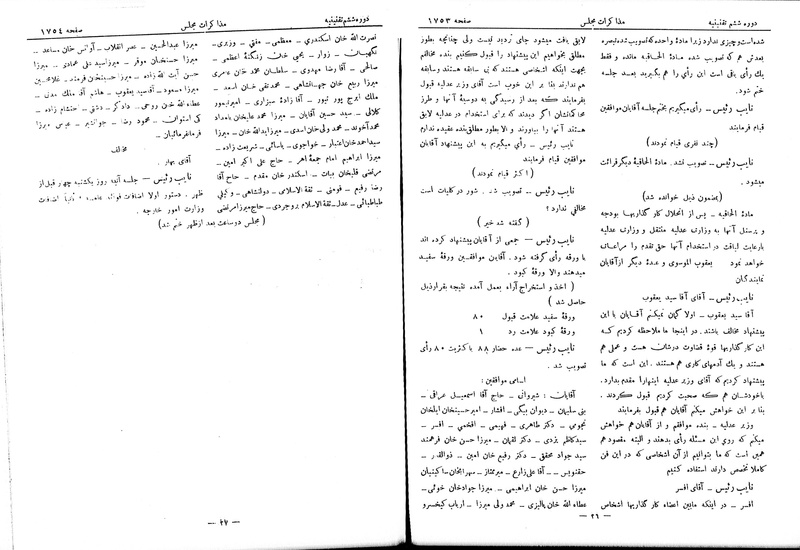 دوره ششم تقنینیه
مذاکرات مجلس
صفحه ۱۷۵۳
شده است و چیزی ندارد زیرا مادهٔ واحده که تصویب شده تبصره
بعدش هم که تصویب شده مادهٔ الحاقیه مانده و فقط
یک رأی باقی است این رأی را هم بگیرید بعد جلسه
ختم شود.
نایب رئیس ـ رأی میگیریم بختم جلسه آقایان موافقین
قیام فرمایند
(چند نفری قیام نمودند)
نایب رئیس ـ تصویب نشد. مادهٔ الحاقیه دیگر قرائت
میشود.
(بمضمون ذیل خوانده شد)
مادهٔ الحاقیه ـ پس از انحلال کارگذاریها بودجه
و پرسنل آنها به وزارت عدلیه منتقل و وزارت عدلیه
بارعایت لیاقت در استخدام آنها حق تقدم را مراعات
خواهد نمود یعقوب الموسوی و عدهٔ دیگر از آقایان
نمایندگان
نایب رئیس ـ آقای آقا سید یعقوب
آقا سید یعقوب ـ اولا گمان نمیکنم آقایان با این
پیشنهاد مخالف باشند. در اینجا ما ملاحظه کردیم که
این کارگذاریها قوهٔ قضاوت درشان هست و عملی هم
هستند و یك آدمهای کاری هم هستند. این است که ما
پیشنهاد کردیم که آقای وزیر عدلیه اینهارا مقدم بدارد.
باخودشان هم که صحبت کردیم قبول کردند.
بنا بر این خواهش میکنم آقایان هم قبول بفرمایند
وزیر عدلیه ـ بنده موافقم و از آقایان هم خواهش
میکنم که روی این مسئله رأی بدهند و البته مقصود هم
همین است که ما بتوانیم از آن اشخاصی که در این فن
کاملا تخصص دارند استفاده کنیم
نایب رئیس ـ آقای افسر
افسر ـ در اینکه مابین اعضاء کارگذاریها اشخاص
لایق یافت میشود جای تردید نیست ولی چنانچه بطور
بخواهیم این پیشنهاد را قبول کنیم بنده مخالفم
بجهت اینکه اشخاصی هستند که بی سابقه هستند و سابقه
هم ندارند بنا بر این خوب است آقای وزیر عدلیه قبول
بفرمایند که بعد از رسیدگی به دوسیهٔ آنها و طرز
محاکماتشان اگر دیدند که برای استخدام در عدلیه لایق
هستند آنها را بیاورند و الا بطور مطلق بنده عقیده ندارم
نایب رئیس ـ رأی میگیریم به این پیشنهاد آقایان
موافقین قیام فرمایند
(اکثر قیام نمودند)
نایب رئیس ـ تصویب شد. شور در کلیات است
مخالفی ندارد؟
(گفته شد خیر)
نایب رئیس ـ جمعی از آقایان پیشنهاد کرده اند
با ورقه رأی گرفته شود. آقایان موافقین ورقهٔ سفید
میدهند والا ورقهٔ کبود.
(اخذ و استخراج آراء بعمل آمده نتیجه بقرار ذیل
حاصل شد)
ورقهٔ سفید علامت قبول ۸۰
ورقهٔ کبود علامت رد ۱
نایب رئیس ـ عده حضار ۸۸ با اکثریت ۸۰ رأی
تصویب شد.
اسامی موافقین:
آقایان: شیروانی ـ حاج آقا اسمعیل عراقی ـ
بنی سلیمان ـ دیوان بیگی ـ افشار ـ امیر حسینخان ایلخان
نجومی ـ دکتر طاهری ـ فهیمی ـ افخمی ـ افسر ـ
سیدکاظم یزدی ـ دکتر لقمان ـ میرزا حسن خان فرهمند
سید جواد محقق ـ دکتر رفیع خان امین ـ ذوالقدر ـ
حقنویس ـ آقا علی زارع ـ میرممتاز ـ سهرابخان ساکینیان
میرزا حسن خان ابراهیمی ـ میرزا جوادخان خوئی ـ
عطاء الله خان پالیزی ـ محمد ولی میرزا ـ ارباب کیخسرو
ـ ۲۶ ـ
دوره ششم تقنینیه
مذاکرات مجلس
صفحه ۱۷۵۴
نصرت الله خان اسکندری ـ معظمی ـ مفتی ـ وزیری ـ
نگهبان ـ زوار ـ یحیی خان زنگنهٔ اعظمی ـ
صالحی ـ آقا رضا مهدوی ـ سلطان محمد خان عامری
میرزا ربیع خان جهانشاهی ـ محمد تقی خان اسعد ـ
ملك ایرج پور تیمور ـ آقا زادهٔ سبزواری ـ امیر تیمور
کلالی ـ سید حسین آقایان ـ میرزا محمد علیخان بامداد
محمد آخوند ـ محمد ولی خان اسدی ـ میرزا یدالله خان ـ میرزا
سید احمد خان اعتبار ـ خواجوی ـ یاسائی ـ شریعت زاده ـ
میرزا ابراهیم امام جمعهٔ اهر ـ حاج علی اکبر امین ـ
مرتضی قلیخان بیات ـ اسکندر خان مقدم ـ حاج آقا
رضا رفیع ـ فومنی ـ ثقة الاسلامی ـ دولتشاهی ـ وکیلی
طباطبائی ـ عدل ـ ثقة الاسلام بروجردی ـ حاج میرزا مرتضی
میرزا عبدالحسین ـ عصر انقلاب ـ آوانس خان مساعد ـ
میرزا حسنخان موقر ـ میرزا سید علی عمادی ـ میرزا
حسن آیت الله زاده ـ میرزا حسینخان فرمند ـ غلامحسین
میرزا مسعود ـ آقا سید یعقوب ـ هاشم آقا ملك مدنی ـ
عطاء الله خان روحی ـ دادگر ـ دشتی ـ حشتام زاده ـ
کی استوان ـ محمود رضا ـ جوانشیر ـ عباس میرزا
فرمانفرمائیان ـ
مخالف
آقای بهار.
نایب رئیس ـ جلسه آتیه روز یکشنبه چهار قبل از
ظهر. دستور اولا اضافات فوائد عامه. ثانیاً اضافات
وزارت امور خارجه.
(مجلس دو ساعت بعد از ظهر ختم شد)
ـ ۲۷ ـ